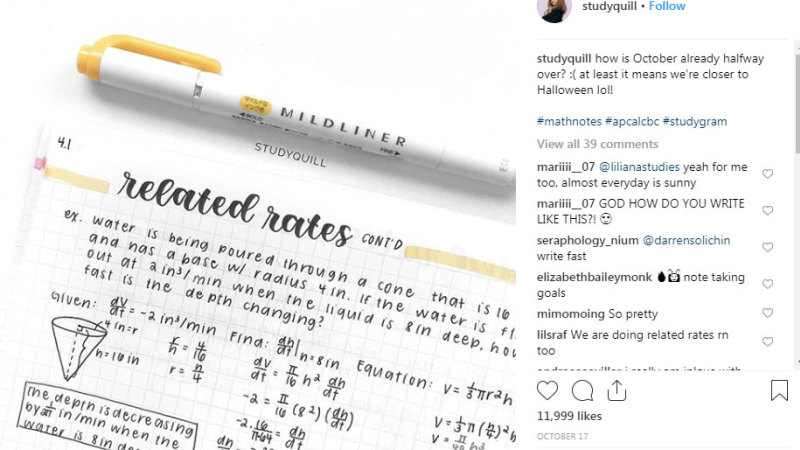 マイルドな
インク色
◀BOLD
MILDLINER
FINE▶
STUDYQUILL
4.1
related rates CONT'D
ex. water is being poured through a cone that is 16
and has a base w/ radius 4 in. If the water is fl
out at 2 in³/min when the liquid is 8in deep, how
fast is the depth changing?
Given: dV/dt = -2 in³/min Find: dh/dt | h=8in Equation: V= 1/3 πr²h
4in=r
h=16in
r/h = 4/16
r = h/4
dV/dt = π/16 h² dh/dt
-2 = π/16 (8²) (dh/dt)
-2·16/π·64 = dh/dt
dh
V= 1/3 π(h/4)²h
V=
The depth is decreasing
in/min when the
water is 8in deep
studyquill • Follow
studyquill how is October already halfway
over? :( at least it means we're closer to
Halloween lol!
#mathnotes #apcalcbc #studygram
View all 39 comments
mariiii__07 @lilianastudies yeah for me
too, almost everyday is sunny
mariiii__07 GOD HOW DO YOU WRITE
LIKE THIS?!
seraphology_nium @darrensolichin
write fast
elizabethbaileymonk note taking
goals
mimomoing So pretty
lilsraf We are doing related rates rn
too
11,999 likes
OCTOBER 17